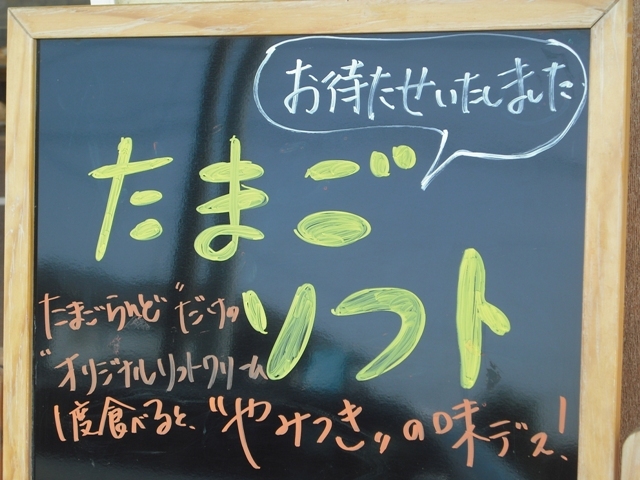 お待たせいたしました
たまご
ソフト
たまごらんど"だけの
"オリジナルソフトクリーム
1度食べると、"やみつき〃の味デス!